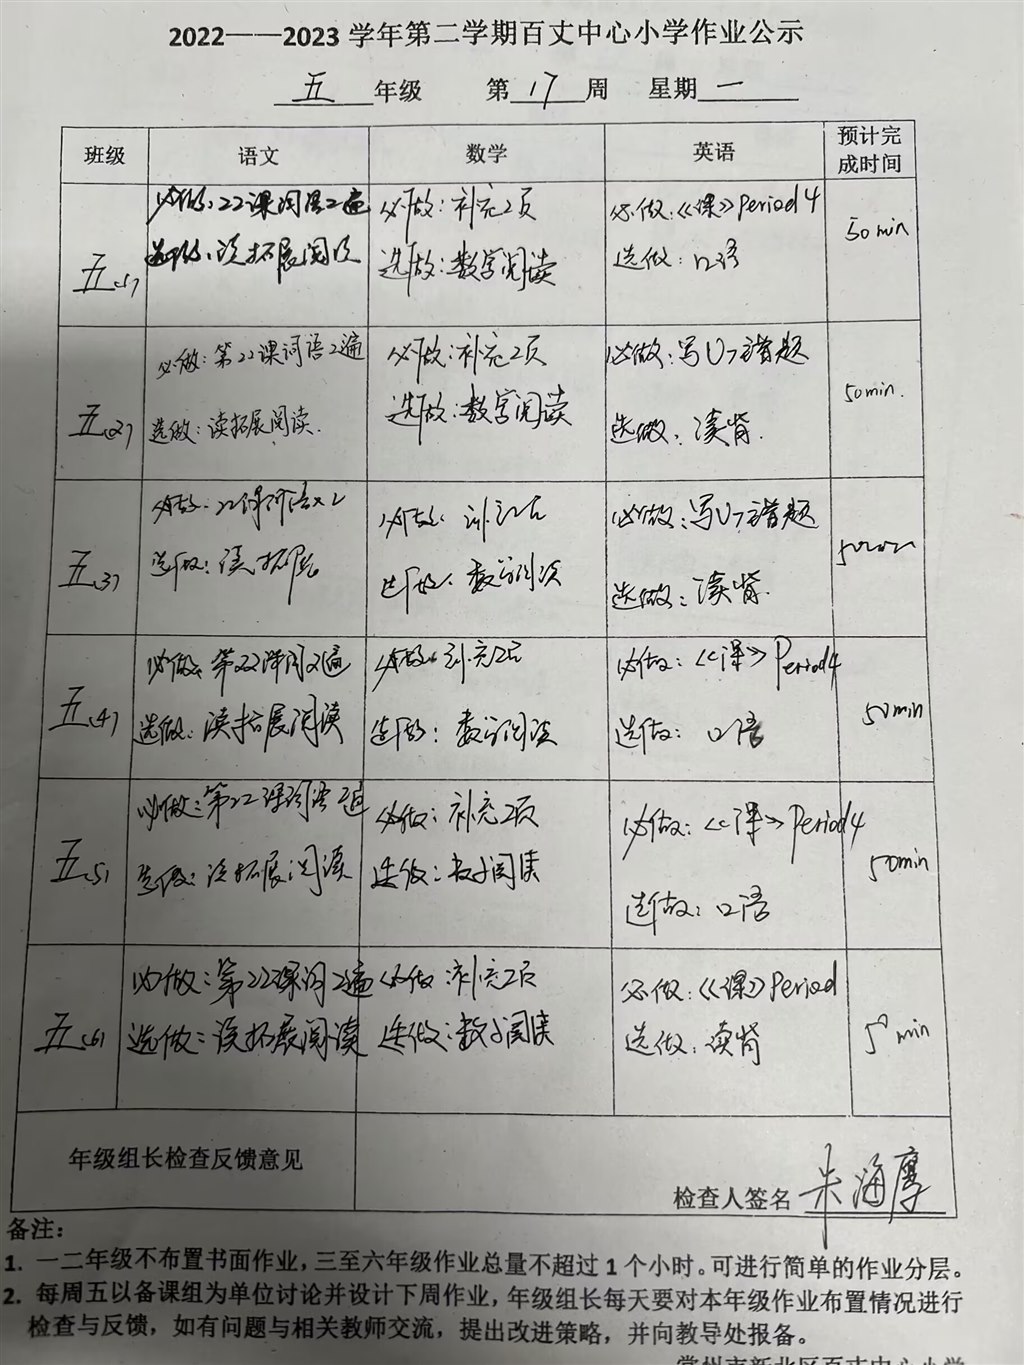 2022——2023学年第二学期百丈中心小学作业公示
五 年级 第 17 周 星期 一
班级 语文 数学 英语 预计完成时间
五(1)
必做:22课词语2遍
选做:读拓展阅读
必做:补充2页
选做:数字阅读
必做:《课》Period 4
选做:口语
50 min
五(2)
必做:第22课词语2遍
选做:读拓展阅读.
必做:补充2页
选做:数字阅读
必做:写U7错题
选做:读背.
50min.
五(3)
必做:22课词语×2
选做:读拓展
必做:补充2页
选做:数字阅读
必做:写U7错题
选做:读背.
50min
五(4)
必做:第22课词2遍
选做:读拓展阅读
必做:补充2页
选做:数字阅读
必做:《课》Period4
选做:口语
50min
五(5)
必做:第22课词语2遍
选做:读拓展阅读
必做:补充2页
选做:数字阅读
必做:《课》Period4
选做:口语
50min
五(6)
必做:第22课词2遍
选做:读拓展阅读
必做:补充2页
选做:数字阅读
必做:《课》Period
选做:读背
50 min
年级组长检查反馈意见
检查人签名 朱海
备注:
1. 一二年级不布置书面作业,三至六年级作业总量不超过1个小时。可进行简单的作业分层。
2. 每周五以备课组为单位讨论并设计下周作业,年级组长每天要对本年级作业布置情况进行
检查与反馈,如有问题与相关教师交流,提出改进策略,并向教导处报备。
常州市新北区百丈中心小学